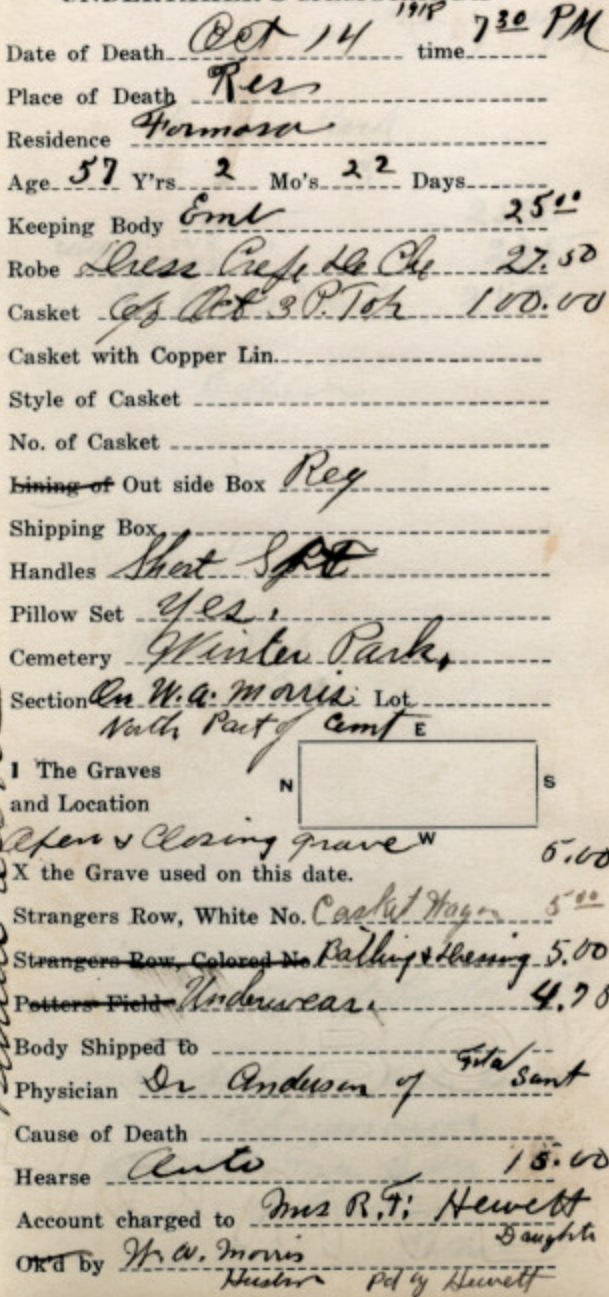 1918
Date of Death Oct 14 time 7 30 PM
Place of Death Res
Residence Formosa
Age 57 Y'rs 2 Mo's 22 Days
Keeping Body Emb 25 00
Robe Dress Crepe De Che 27.50
Casket Oct 3 P. Top 100.00
Casket with Copper Lin.
Style of Casket
No. of Casket
Lining of Out side Box Reg
Shipping Box
Handles Short
Pillow Set Yes.
Cemetery Winter Park.
Section On W.A. Morris Lot
North Part of Cemt E
1 The Graves
and Location
N S
Open & Closing grave W 5.00
X the Grave used on this date.
Strangers Row, White No. Casket Wagon 5 00
Strangers Row, Colored No Bathing & Dressing 5.00
Potters Field Underwear.
Body Shipped to
Physician Dr Anderson of
Cause of Death
Hearse Auto 15.00
Account charged to Mrs R.F. Hewett
Daughter
Ok'd by W.A. Morris
Husban Pd by Hewett